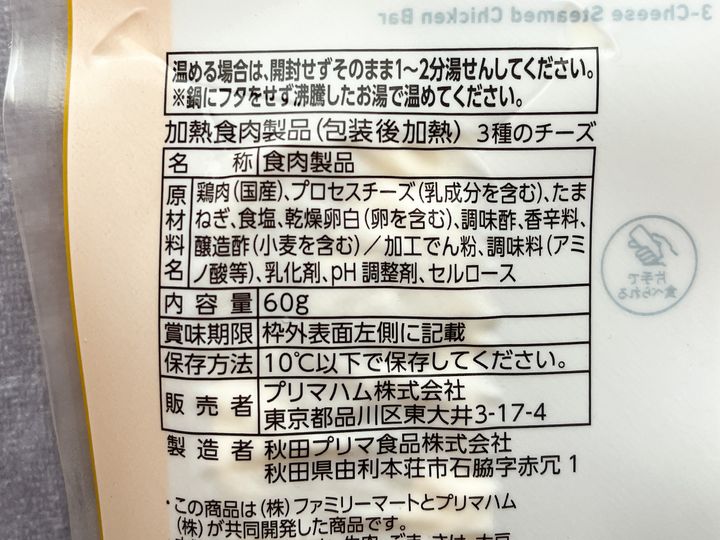 3-Cheese Steamed Chicken Bar
温める場合は、開封せずそのまま1〜2分湯せんしてください。
※鍋にフタをせず沸騰したお湯で温めてください。
加熱食肉製品(包装後加熱) 3種のチーズ
名 称 食肉製品
原材料名 鶏肉(国産)、プロセスチーズ(乳成分を含む)、たま
ねぎ、食塩、乾燥卵白(卵を含む)、調味酢、香辛料、
醸造酢(小麦を含む)/加工でん粉、調味料(アミ
ノ酸等)、乳化剤、pH調整剤、セルロース
内容量 60g
賞味期限 枠外表面左側に記載
保存方法 10℃以下で保存してください。
販売者 プリマハム株式会社
東京都品川区東大井3-17-4
製造者 秋田プリマ食品株式会社
秋田県由利本荘市石脇字赤冗1
・この商品は(株)ファミリーマートとプリマハム
(株)が共同開発した商品です。
片手で
食べられる